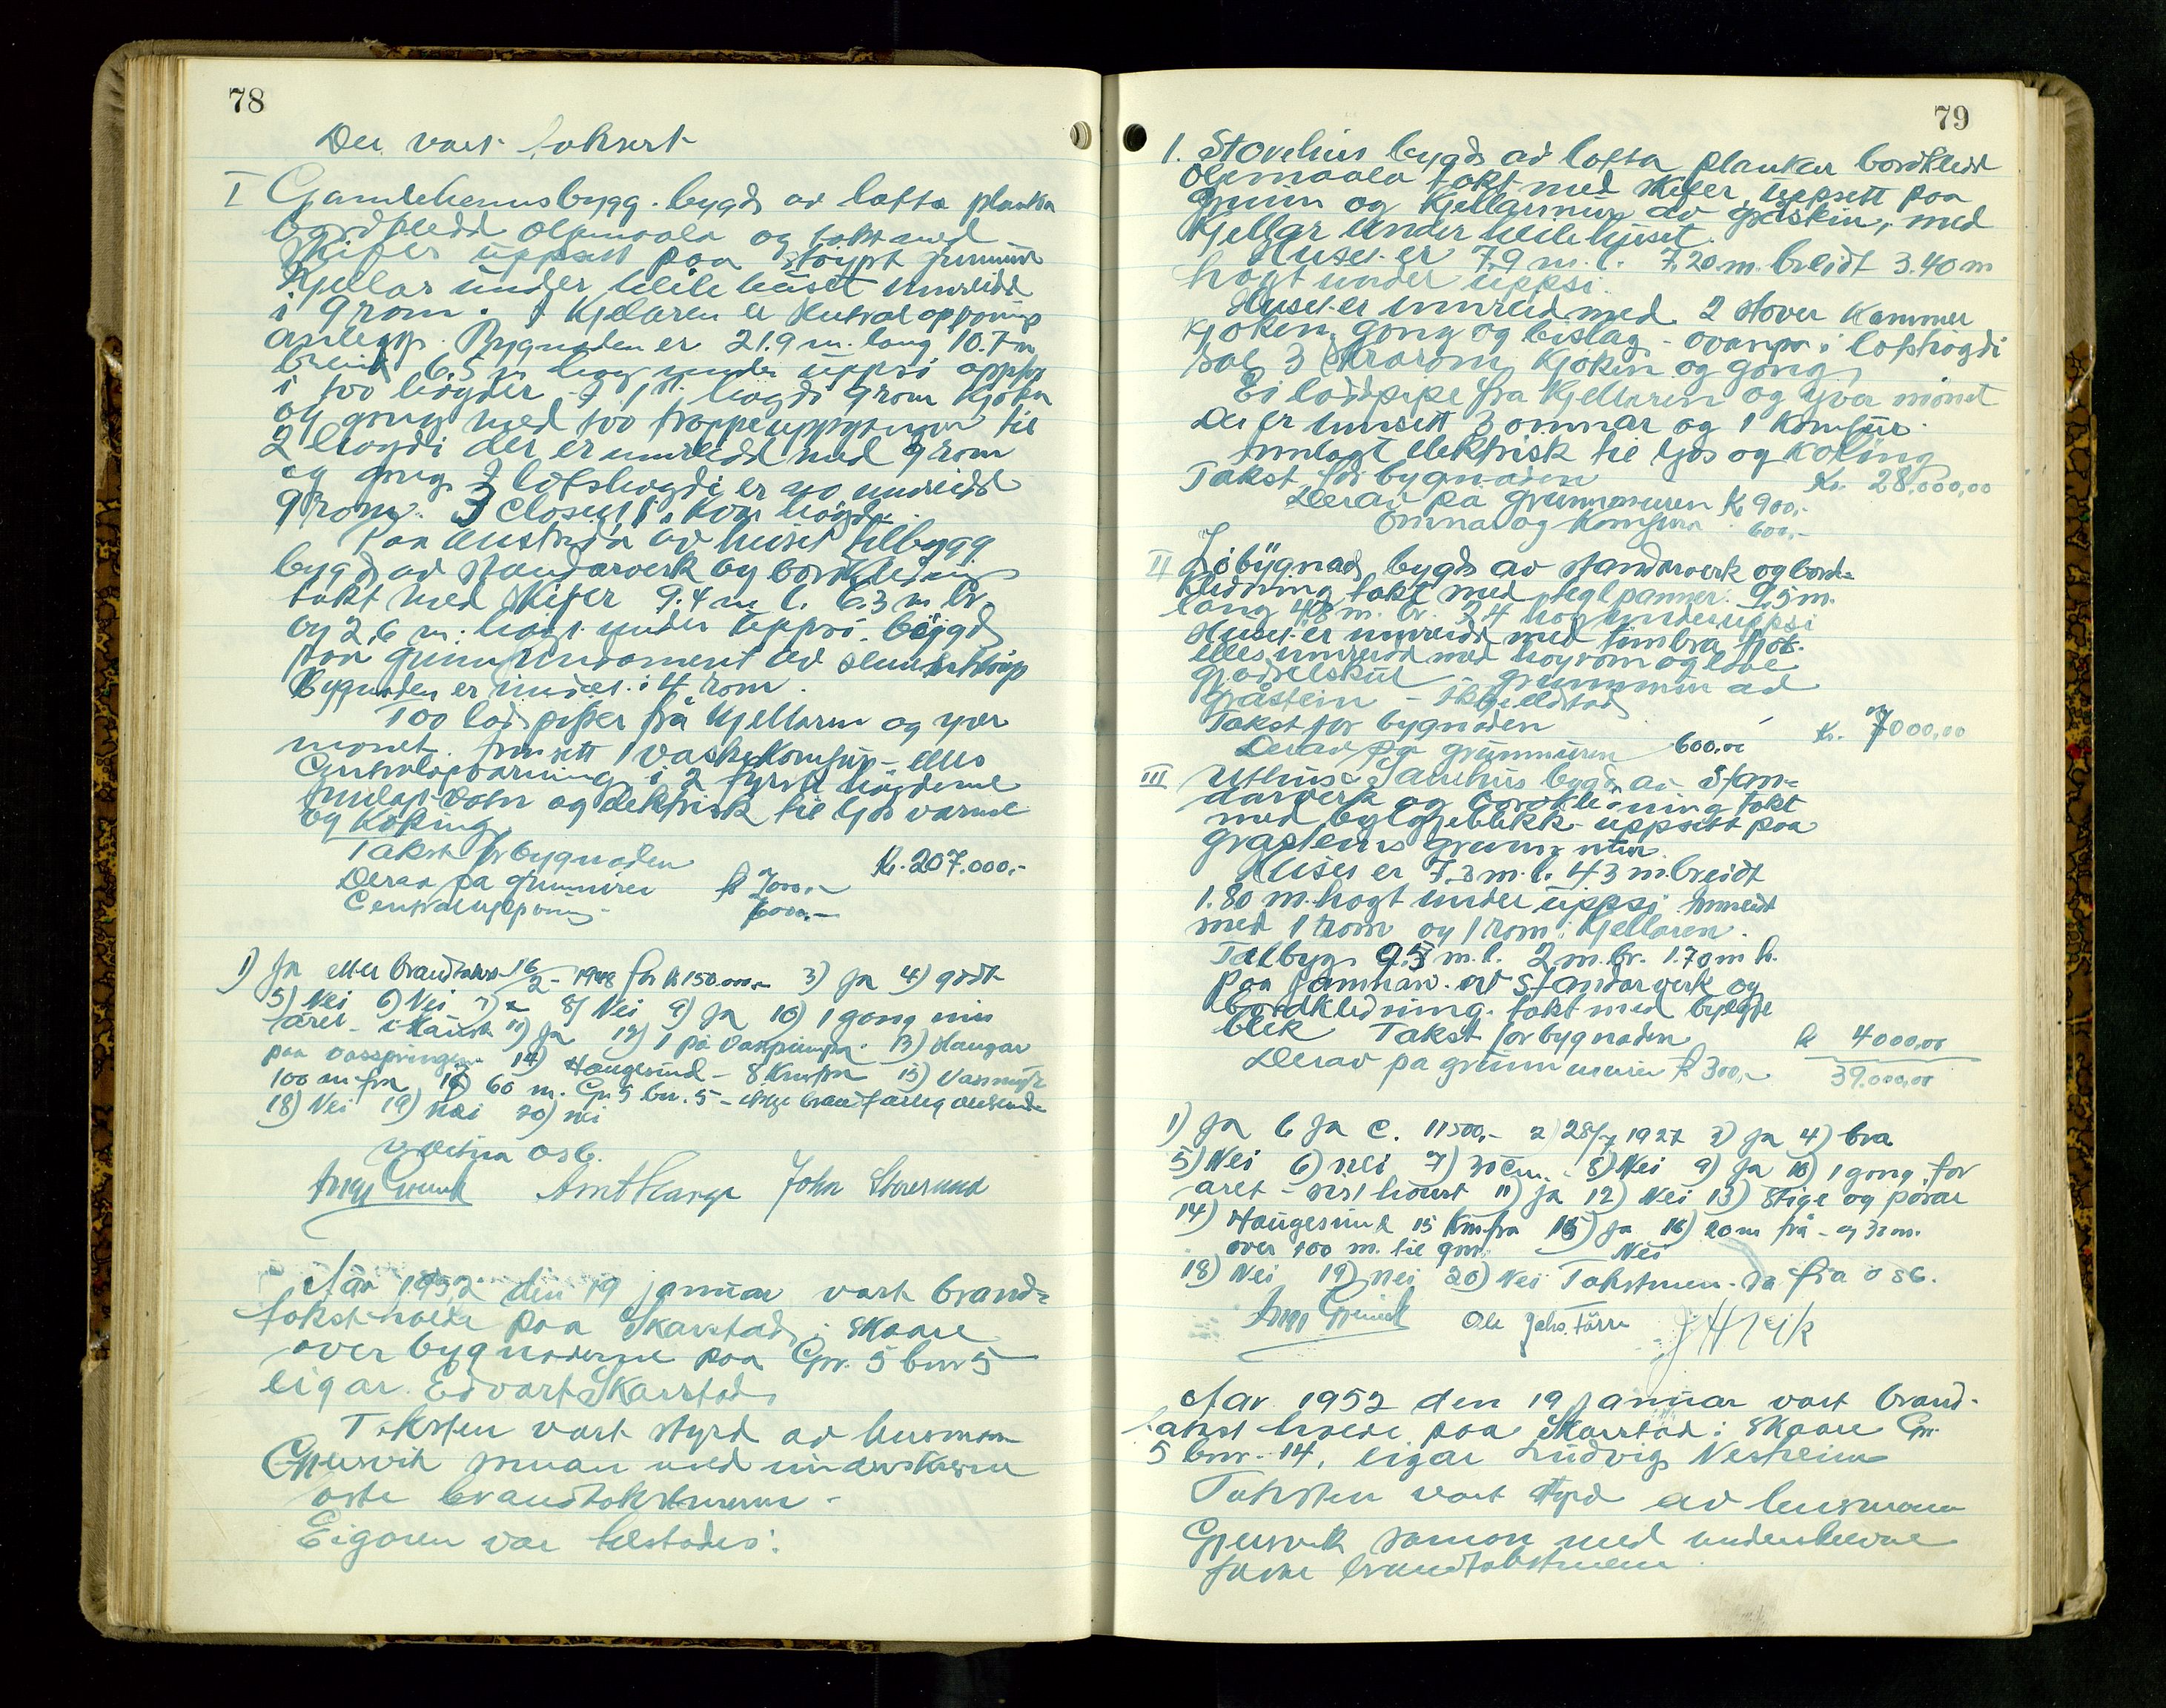 78
Der vart taksert
I Gamlehemsbygg. bygd av lafta planka
bordkledd oljemaala og takt med
Skifer uppsett paa støypt grunnmur
Kjellar under heile huset innreidd
i 9 rom. I Kjellaren er sentraloppvarmings
anlegg. Bygnaden er 21.9 m. lang 10.7 m
breid 6.5 m høg under uppsi oppsett
i too høgder - I 1st. høgdi 9 rom Kjøken
og gong med too trappeuppgangar til
2 høgdi der er innreidd med 9 rom
og gong I loftshøgdi er no innreidd
9 rom. 3 Closett i. kvar høgde.
Paa austsida av huset tilbygg
bygd av standarverk og bordkledning
takt med skifer 9.4 m l. 6.3 m br.
og 2,6 m. høgt under uppsi. bygd
paa grunnfundament av sementstøyp
Bygnaden er innreid i 4 rom.
Too lodpiper frå Kjellaren og yver
mønet. Innsett 1 vaskekomfur - elles
Centralopvarming i 2 fyrste høgderne
Innlagt vatn og elektrisk til ljos varme
og Koking
Takst for bygnaden Kr. 207.000,-
Derav pa grunnmuren kr 7000,-
Centraluppvarming - 6000,-
1) Ja etter brandtakst 16/2 - 1948 for kr 150.000,- 3) Ja 4) godt
5) Nei 6) Nei 7) - 8) Nei 9) Ja 10) 1 gong um
året - i Haust 11) Ja 12) 1 på Vasspumpa 13) Slangar
paa vasspringen. 14) Haugesund - 8 Km fra 15) Vassmyr
100 m fra 16) 60 m. Gn 5 bn. 5 - ikkje brandfarleg avstand
18) Nei 19) Nei 20) Nei
Arnt Hauge John Storesund
Aar 1952 den 19 januar vart brand-
takst halde paa Skarstad i Skaare
over bygnaderne paa Gnr. 5 bnr 5
eigar. Edvart Skarstad.
Taksten vart styrd av lensmann
Gjersvik saman med underskrevne
faste brandtakstmenn -
Eigaren var tilstades.
79
1. Stovehus bygd av lafta planker bordkledd
Oljemaala takt med skifer, uppsett paa
Grunn og Kjellarmur av gråstein, med
Kjellar under heile huset.
Huset er 7.9 m. l. 7.20 m. breidt 3.40 m
høgt under uppsi.
Huset er innreid med 2 stover Kammer
Kjøken, gong og bislag - ovanpa i lofthøgdi
sal 3 Skrarom Kjøken og gong
Ei lodpipe fra Kjellaren og yver mønet
Der er innsett 3 omnar og 1 Komfur.
Innlagt elektrisk til ljos og Koking
Takst for bygnaden Kr. 28.000,00
Derav pa grunnmuren Kr 900,-
Omnar og Komfur 600,-
II Løbygnad, bygd av standarverk og bord-
kledning takt med teglpanner. 9,5 m.
lang 4,8 m. br. 3,4 høg under uppsi
Huset er innreidd med timbra fjøs.
elles innreidd med høyrom og løe
gjødselskur - grunnmur av
gråstein -
Takst for bygnaden Kr. 7000,00
Derav pa grunnmuren 600,00
III Uthus & Sauehus bygd av Stan-
darverk og bordkledning takt
med bylgjeblikk uppsett paa
grasteins grunnmur
Huset er 7.3 m. l. 4.3 m. breidt
1.80 m. høgt under uppsi innreidt
med 1 rom og 1 rom i Kjellaren.
Tilbygg 9.5 m. l. 2 m. br. 1.70 m h.
paa framman av Standarverk og
bordkledning. takt med bylgje
blek Takst for bygnaden kr 4000,00
Derav pa grunnmuren kr 300,- 39.000,00
1) Ja 6 Ja C. 11500,- 2) 28/7 1927 3) Ja 4) bra
5) Nei 6) Nei 7) 30 Cm. 8) Nei 9) Ja 10) 1 gong for
aret - sist haust 11) Ja 12) Nei 13) Stige og pøsar
14) Haugesund 15 Km fra 15) Ja 16) 20 m frå - og 32 m.
over 100 m. til gnr. Nei
18) Nei 19) Nei 20) Nei Takstmen. da fra 0 86.
Ole Johs. Førre
Aar 1952 den 19 januar vart brand-
takst halde paa Skarstad i Skaare Gnr.
5 bnr. 14, eigar Ludvig Nesheim
Taksten vart styrd av lensmann
Gjersvik saman med underskrevne
faste brandtakstmenn